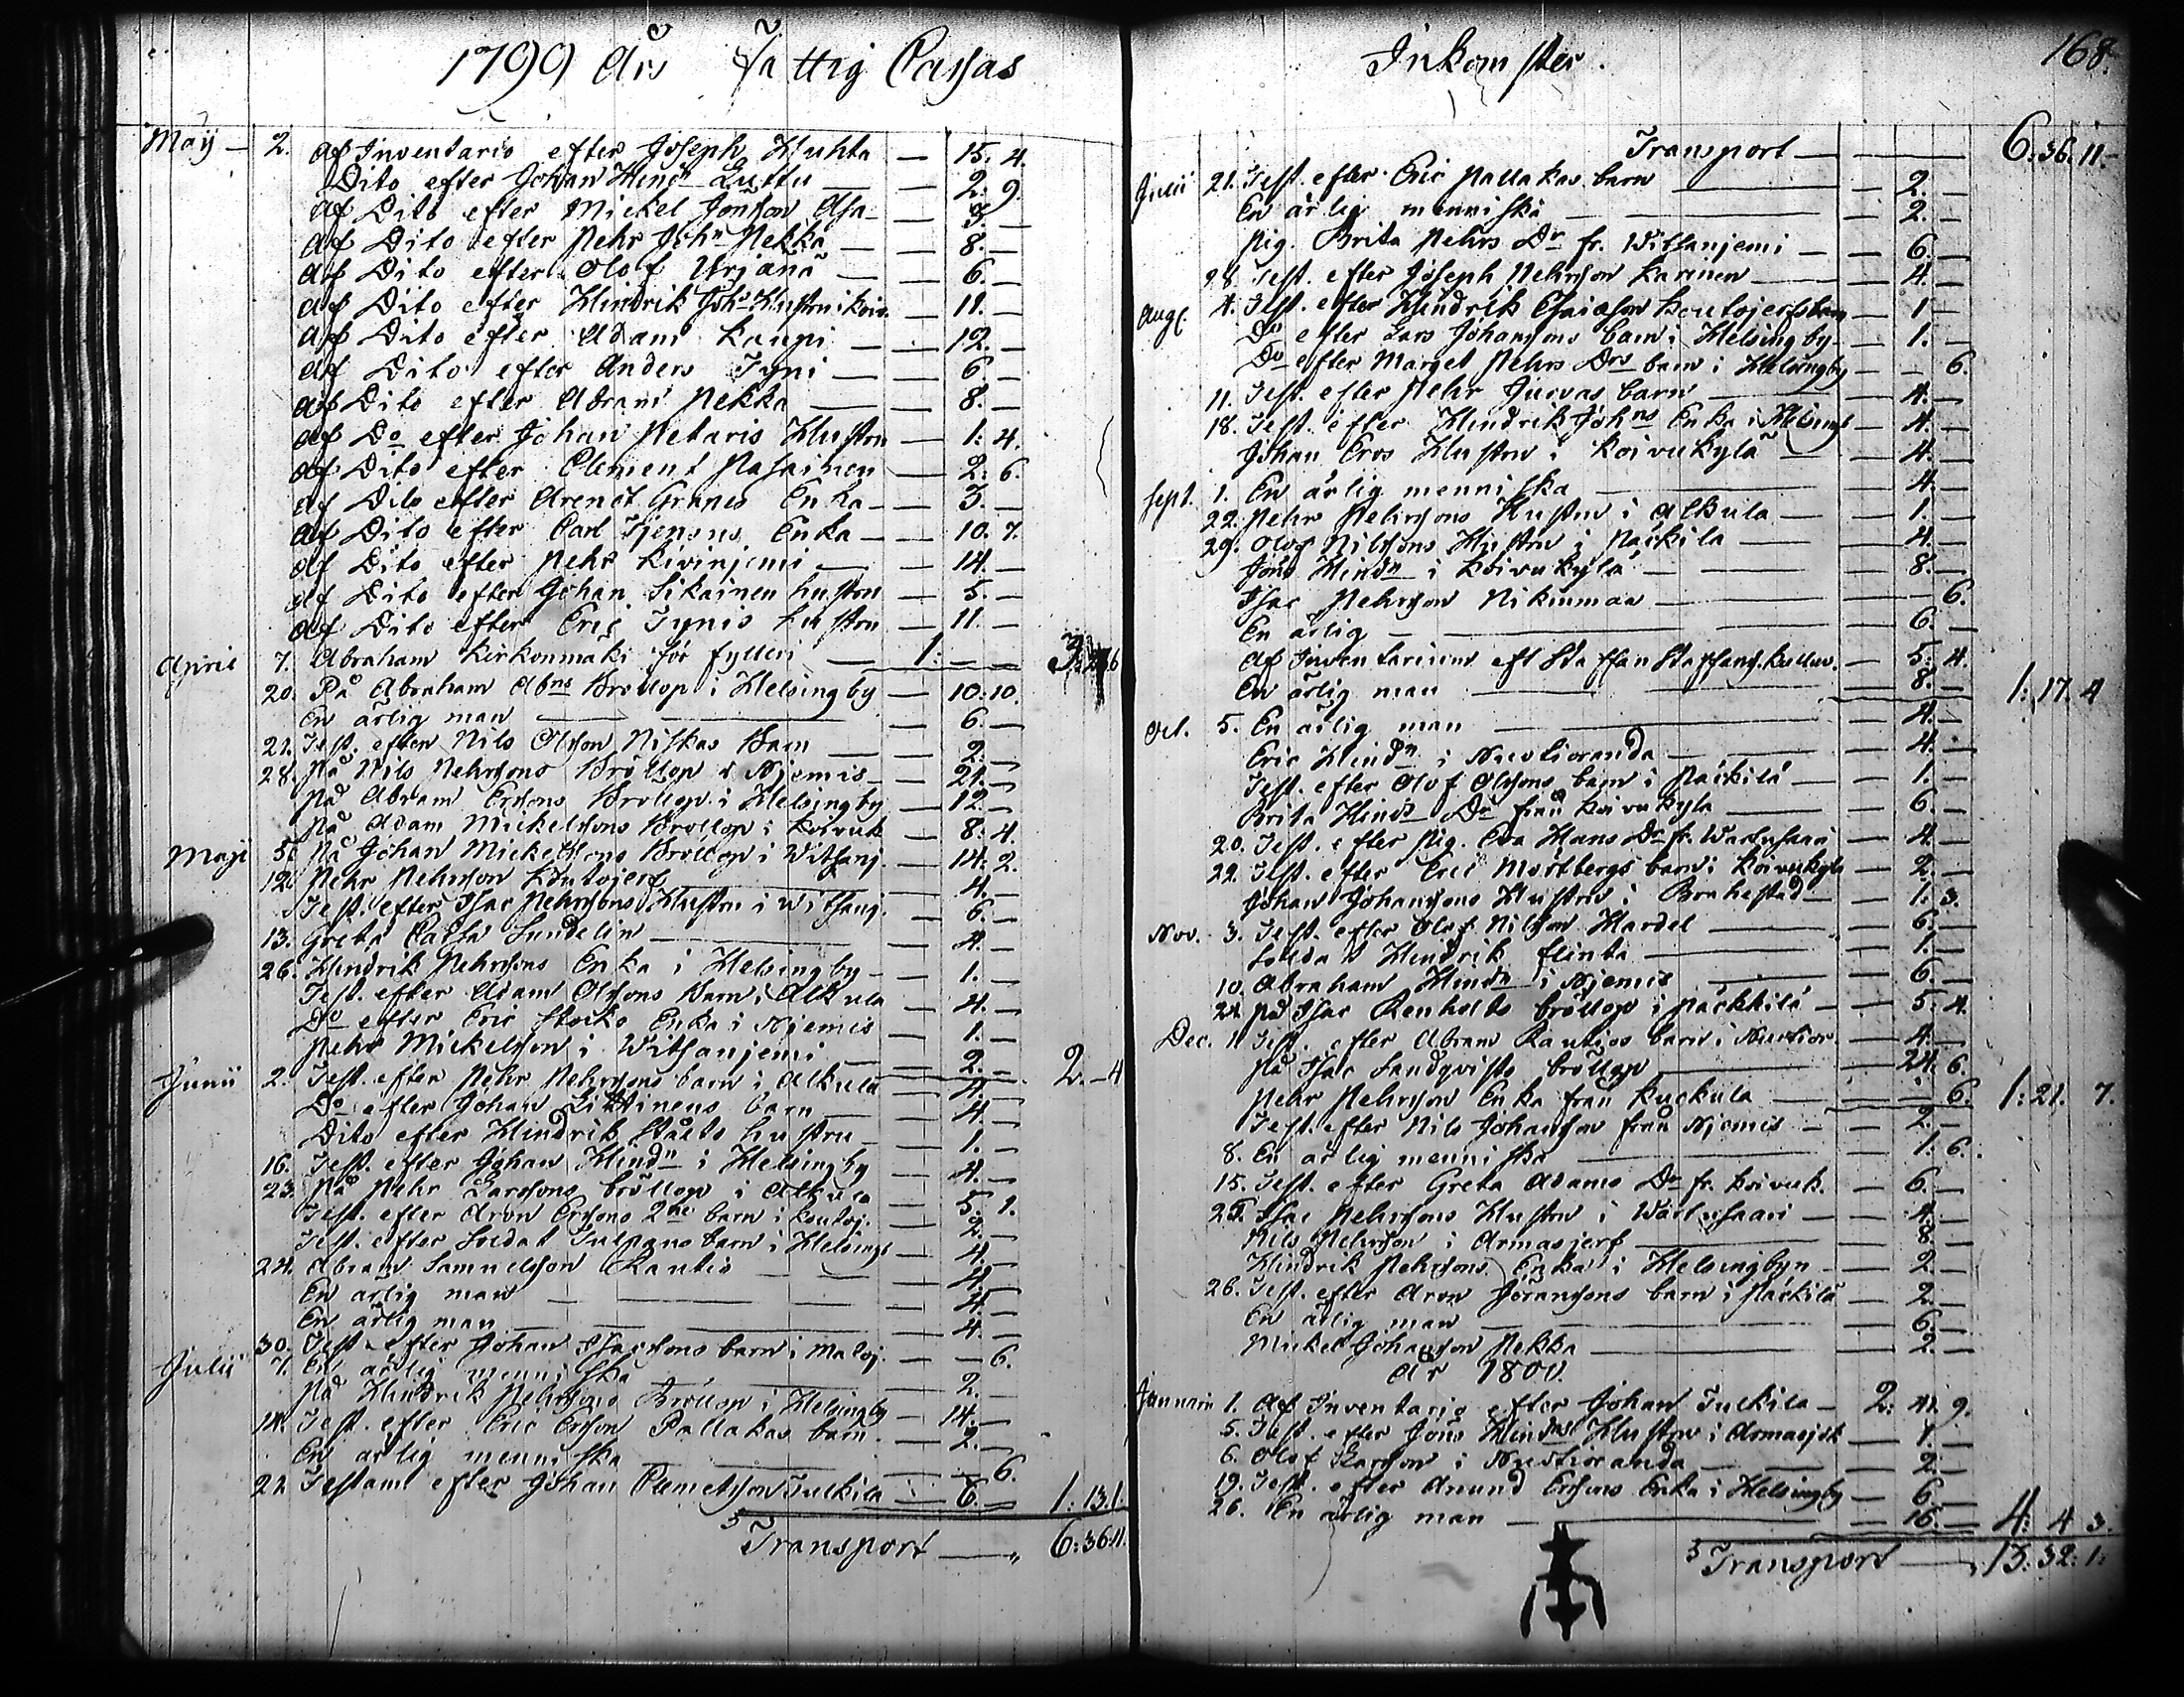 1799 Års Fattig Cassas
Maÿ — 2. Af Inventario efter Joseph Huhta — 15. 4.
Dito efter Johan Hindn Luttu — 2. 9.
Af Dito efter Mickel Jonsson Asa — 3. —
Af Dito efter Pehr Johsn Pekka — 8. —
Af Dito efter Olof Yrjänä — 6. —
Af Dito efter Hindrik Johs Hustru i Koiv. — 11. —
Af Dito efter Adam Kaupi — 12. —
Af Dito efter Anders Tyni — 6 —
Af Dito efter Adam Pekka — 8. —
Af Do efter Johan Petaris Hustru — 1: 4.
Af Dito efter Clement Pasainen — 2: 6.
Af Dito efter Arendt Grapes Enka — 3. —
Af Dito efter Carl Enka — 10. 7.
Af Dito efter Pehr Kivinjemi — 14. —
Af Dito efter Johan Sikainen hustru — 5. —
Af Dito efter Eric Tynis hustru — 11. —
April 7. Abraham Kirkonmaki för fylleri — 1: — —
20. På Abraham Abns Bröllop i Helsingby — 10: 10.
En ärlig man — 6. —
21. Test. efter Nils Olsson Niskas Barn — 2. —
28. På Nils Pehrssons Bröllop i Njemis — 21. —
På Abram Ersons Bröllop i Helsingby — 12 —
På Adam Mickelssons Bröllop i Koivuk — 8: 4.
Maji 5. På Johan Mickelssons Bröllop i Witsanj. — 14: 2.
12. Pehr Pehrsson Koutojerf — 4. —
Test. efter Isac Pehrssons Hustru i Witsanj. — 6. —
13. Greta Caisa Sundelin — 4. —
26. Hindrik Pehrssons Enka i Helsingby — 1. —
Test. efter Adam Olssons Barn i Alkula — 4. —
Do efter Eric Stocks Enka i Njemis — 1. —
Pehr Mickelsson i Witsanjemi — 2. — 2. — 4
Junii 2. Test. efter Pehr Pehrssons barn i Alkula — 4. —
Do efter Johan barn — 4. —
Dito efter Hindrik Ståhls hustru — 1. —
16. Test. efter Johan Hindn i Helsingby — 4. —
23. På Pehr Larssons bröllop i Alkula — 5. 1.
Test. efter Aron Ersons 2ne barn i Koutoj. — 2. —
Test. efter Soldat Tulpans barn i Helsingb — 4. —
24. Abram Samuelsson Rautio — 4. —
En ärlig man — 4. —
En ärlig man — 4. —
30. Test. efter Johan Isacssons barn i Matoj. — — 6.
Julii 7. En ärlig menniska — 2. —
På Hindrik Pehrssons Bröllop i Helsingby — 14. —
14. Test. efter Eric Ersson Pallakas barn — 2. —
En ärlig menniska — — 6.
21. Testam. efter Johan Clemetsson Tulkila — 6. — 1: 13. 1.
Transport — 6: 36. 11.
Inkomster.
168.
Transport — 6: 36. 11. —
Julii 21. Test. efter Eric Pallakas barn — 2. —
En ärlig menniska — 2. —
Pig. Brita Pehrs Dr fr. Witsanjemi — 6. —
28. Test. efter Joseph Pehrsson Karinen — 4. —
Aug. 4. Test. efter Hindrik Esaiason Koutojerfs barn — 1 —
Do efter Lars Johanssons barn i Helsingby — 1. —
Do efter Marget Pehrs Drs barn i Helsingby — — 6.
11. Test. efter Pehr Juevas barn — 4. —
18. Test. efter Hindrik Johns Enka i Helsingb — 4. —
Johan Ers Hustru i Koivukylä — 4. —
Sept. 1. En ärlig menniska — 4. —
22. Pehr Pehrssons Hustru i Alkula — 1. —
29. Olof Nilssons Hustru i Päckila — 4. —
Jöns Hindn i Koivukylä — 8. —
Isac Pehrsson Nikinmaa — — 6.
En ärlig — 6. —
Af Inventarium eft Staffan Staffans. Kullun. — 5: 4.
En ärlig man — 8. — 1: 17. 4
Oct. 5. En ärlig man — 4. —
Eric Hindn i Nuotioranda — 4. —
Test. efter Olof Olssons barn i Päckilä — 1. —
Brita Hinds Dr från Koivukyla — 6. —
20. Test. efter Pig. Eva Hans Dr fr. Wartusaari — 4. —
22. Test. efter Eric Mortbergs barn i Koivukylä — 2. —
Johan Johanssons Hustru i Brahestad — 1: 3.
Nov. 3. Test. efter Olof Nilsson Mardel — 6. —
Soldat Hindrik Flinta — 1. —
10. Abraham Hindn i Njemis — 6. —
24. På Isac Renholts bröllop i Päckkilä — 5: 4.
Dec. 1. Test. efter Abram Rautios barn i Nuotior. — 4. —
På Isac Sandqvists bröllop — 24. 6.
Pehr Pehrsson Enka från Kuckula — — 6. 1: 21. 7.
Test. efter Nils Johansson från Njemis — 2. —
8. En ärlig menniska — 1: 6.
15. Test. efter Greta Adams Dr fr. Koivuk. — 6. —
25. Isac Pehrssons Hustru i Wartusaari — 4. —
Nils Pehrsson i Armasjerf — 8. —
Hindrik Pehrssons Enka i Helsingbyn — 2. —
26. Test. efter Aron Göranssons barn i Päckilä — 2. —
En ärlig man — 6. —
Mickel Johansson Pekka — 2. —
År 1800.
Januarii 1. Af Inventario efter Johan Tulkila — 2: 41. 9.
5. Test. efter Jöns Hindns Hustru i Armasjek — 1. —
6. Olof Larsson i Nuotioranda — 2. —
19. Test. efter Amund Ersons Enka i Helsingby — 6. —
26. En ärlig man — 16. — 4: 4 3.
Transport — 13: 32: 1: